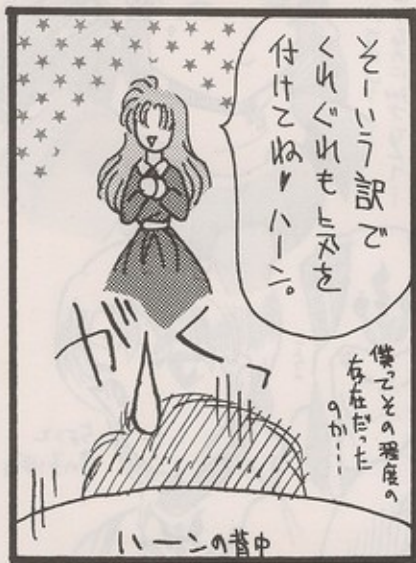 そーいう訳で
くれぐれも気を
付けてね♥ハーン。
がくっ
僕ってその程度の
存在だった
のか…
ハーンの背中